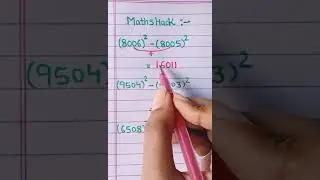 Maths hack :-
(8006)² - (8005)²
+
= 16011
(9504)² - ( 03)²
(6508)